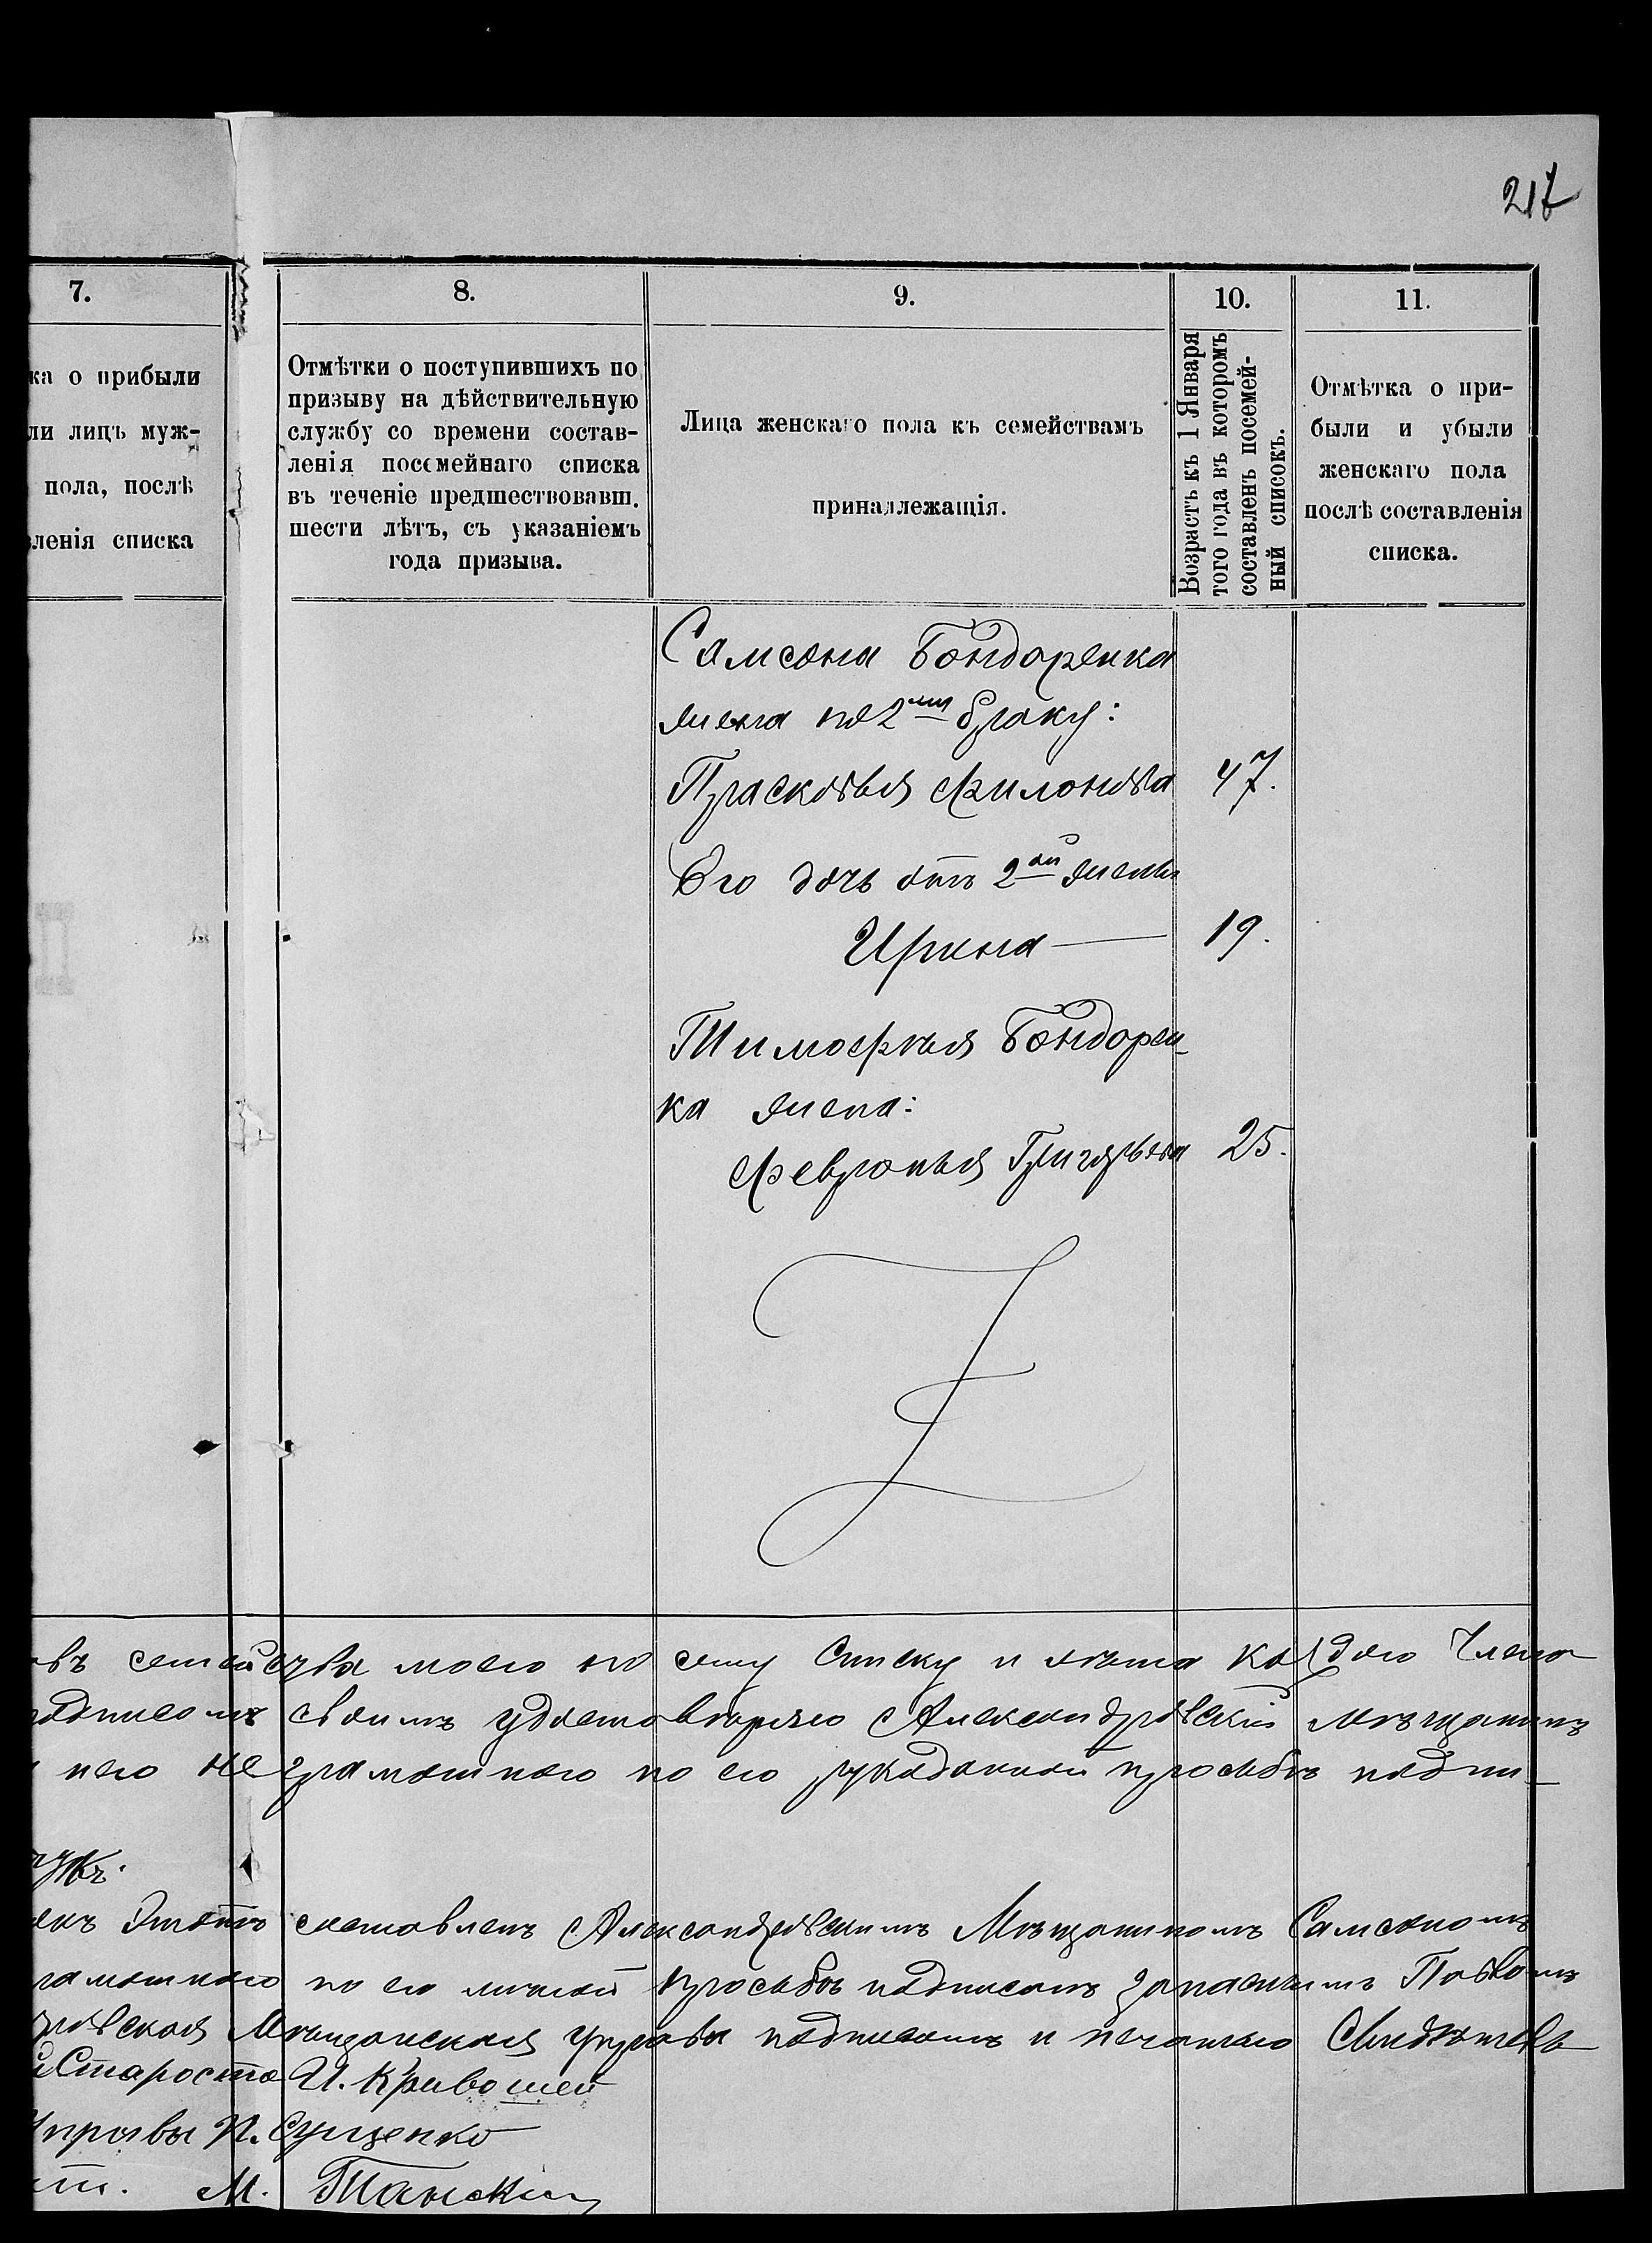 217
7.
8.
9.
10.
11.
ка о прибыли
ли лицъ муж-
пола, послѣ
вленія списка
Отмѣтки о поступившихъ по
призыву на дѣйствительную
службу со времени состав-
ленія посемейнаго списка
въ теченіе предшествовавш.
шести лѣтъ, съ указаніемъ
года призыва.
Лица женскаго пола къ семействамъ
принадлежащія.
Возрастъ къ 1 Января
того года въ которомъ
составленъ посемей-
ный списокъ.
Отмѣтка о при-
были и убыли
женскаго пола
послѣ составленія
списка.
Самсона Бондоренка
жена по 2му браку:
Прасковья Филонова 47.
Его дочь отъ 2ой жены
Ирина 19.
Тимофея Бондорен-
ка жена:
Февронья Григорьева 25.
овъ семейства моего по сему Списку и лѣта каждаго Члена
подписомъ своимъ удостовѣряю Александровскій Мѣщанинъ
него неграмотного по его рукоданной просьбѣ подпи-
этотъ составленъ Александровскимъ Мѣщаниномъ Самсономъ
грамотного по его личной просьбѣ подписомъ запаснымъ
дровская Мѣщанская Управа подписомъ и печатью Свидѣтель
Староста И. Кривошей
Управы И. Сущенко
М. Танскій